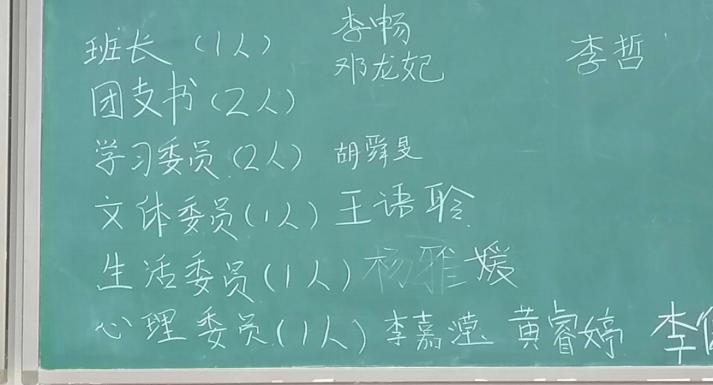 班长（1人） 李畅 李哲
邓龙妃
团支书（2人）
学习委员（2人） 胡舜旻
文体委员（1人）王语聆
生活委员（1人）杨雅媛
心理委员（1人）李嘉滢 黄睿婷 李